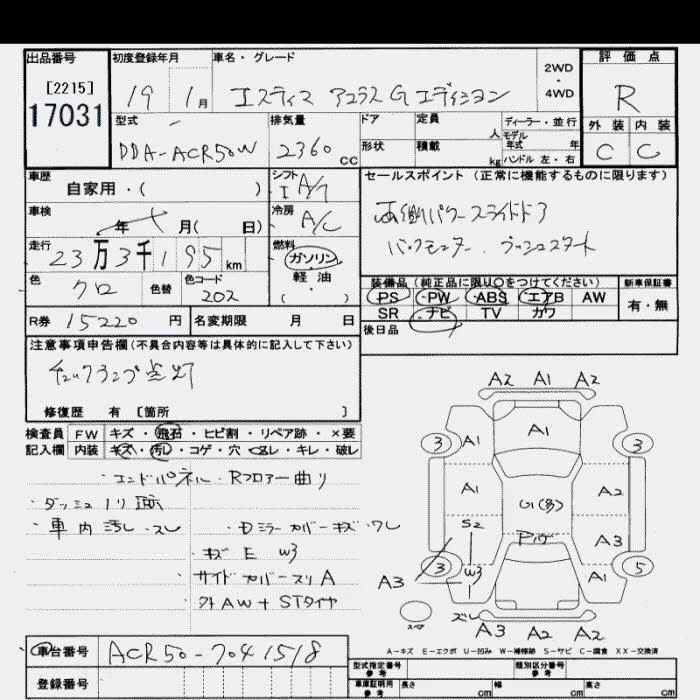 出品番号 初度登録年月 車名・グレード 評価点
[2215] 2WD・4WD
17031 19 1月 エスティマ アエラス G エディション R
型式 排気量 ドア 定員 人 ディーラー・並行 外装 内装
DDA-ACR50W 2360cc 形状 積載 kg モデル年式 年 ハンドル 左・右 C C
車歴 自家用・( ) シフト I A/T セールスポイント (正常に機能するものに限ります)
車検 年 月(日) 冷房 A/C 両側パワースライドドア
走行 23万3千195km 燃料 ガソリン・軽油・( ) バックモニター、プッシュスタート
色 クロ 色替 色コード 202 装備品 (純正品に限り○をつけてください) 新車保証書
PS・PW・ABS・エアB AW 有・無
R券 15220円 名変期限 月 日 SR ナビ TV カワ
後日品
注意事項申告欄 (不具合内容等は具体的に記入して下さい)
チェックランプ点灯
修復歴 有 [箇所 ]
検査員 FW キズ・飛石・ヒビ割・リペア跡・×要
記入欄 内装 キズ・汚れ・コゲ・穴・スレ・キレ・破レ
・エンドパネル・Rフロアー曲り
・ダッシュノリ跡
・車内汚レ・スレ ・Dミラーカバーキズ・ワレ
・キズ E W3
・サイドカバースリ A
・外AW+STタイヤ
A2 A1 A2
3 A1 A1 3
A1 U1(多) A2
S2 Pいヤケ A3
3 W3 A1 5
A3
スペア ズレ A3 A2 A2
A-キズ E-エクボ U-凹み W-補修跡 S-サビ C-腐食 XX-交換済
車台番号 ACR50-7041518
登録番号
型式指定番号 参考 類別区分番号 参考
車庫証明用 参考 長さ cm 幅 cm 高さ cm